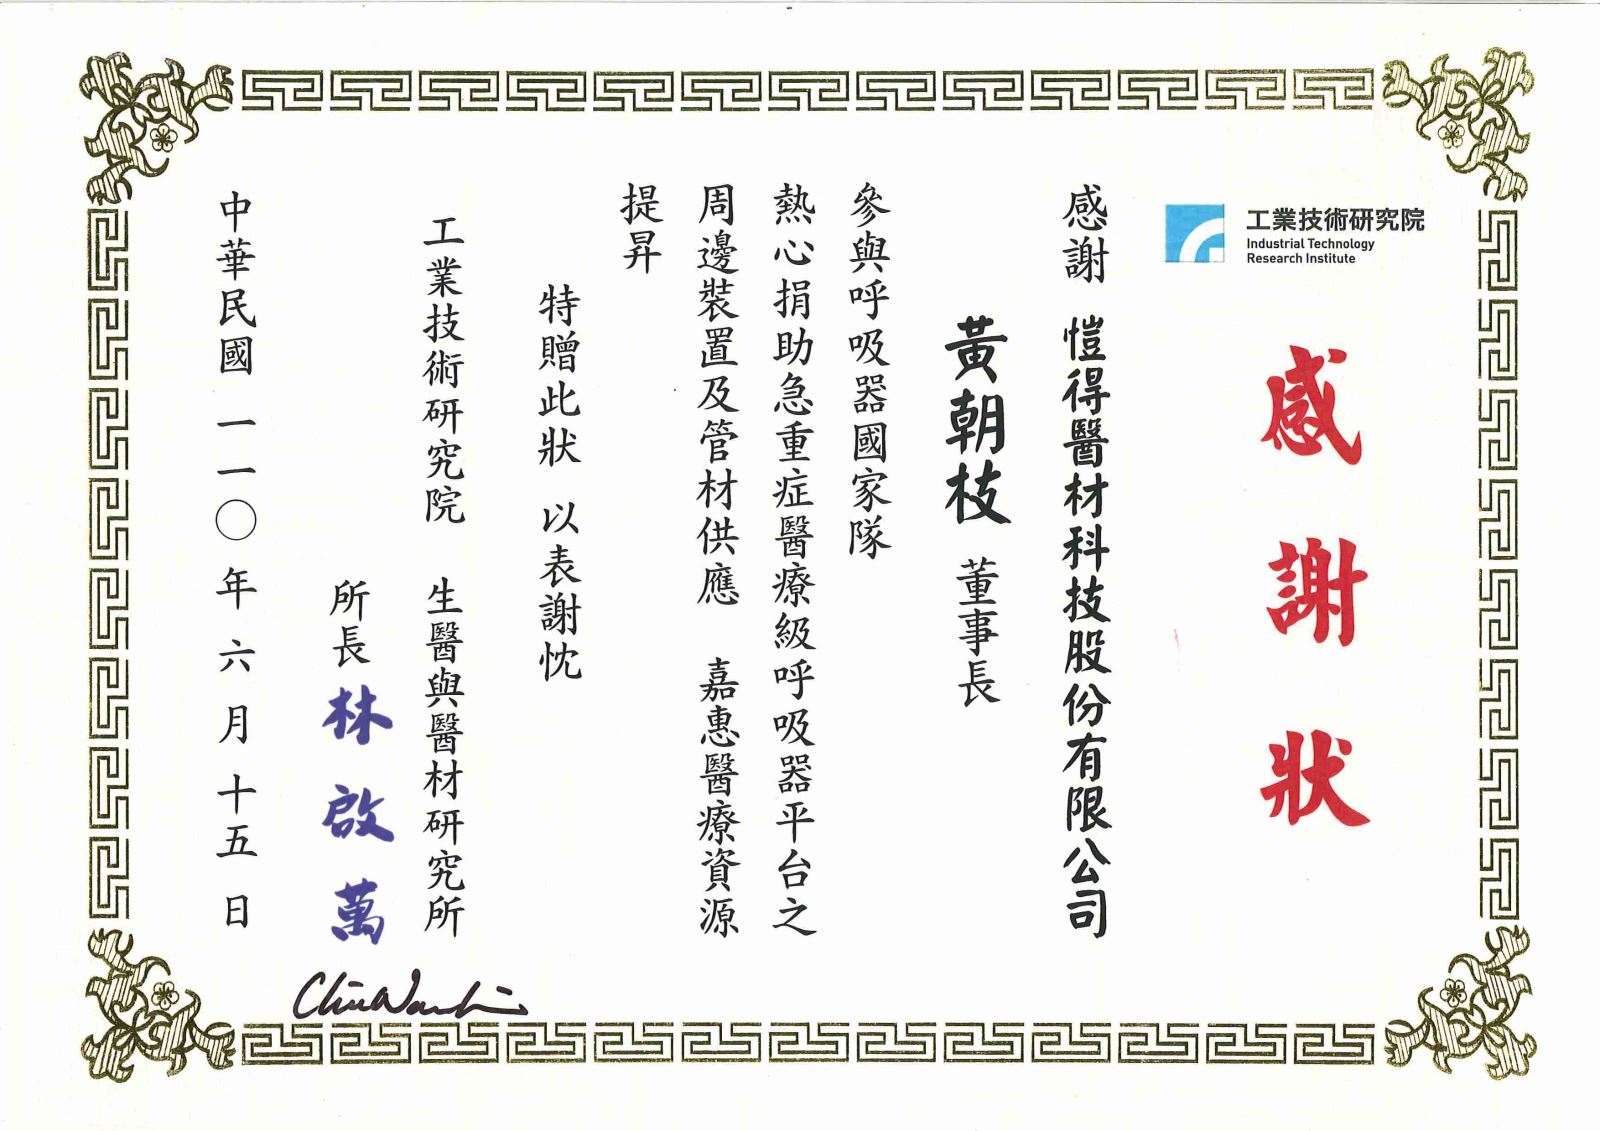 工業技術研究院
Industrial Technology
Research Institute
感謝狀
感謝 愷得醫材科技股份有限公司
黃朝枝 董事長
參與呼吸器國家隊
熱心捐助急重症醫療級呼吸器平台之
周邊裝置及管材供應 嘉惠醫療資源
提昇
特贈此狀 以表謝忱
工業技術研究院 生醫與醫材研究所
所長 林啟萬
中華民國一一〇年六月十五日